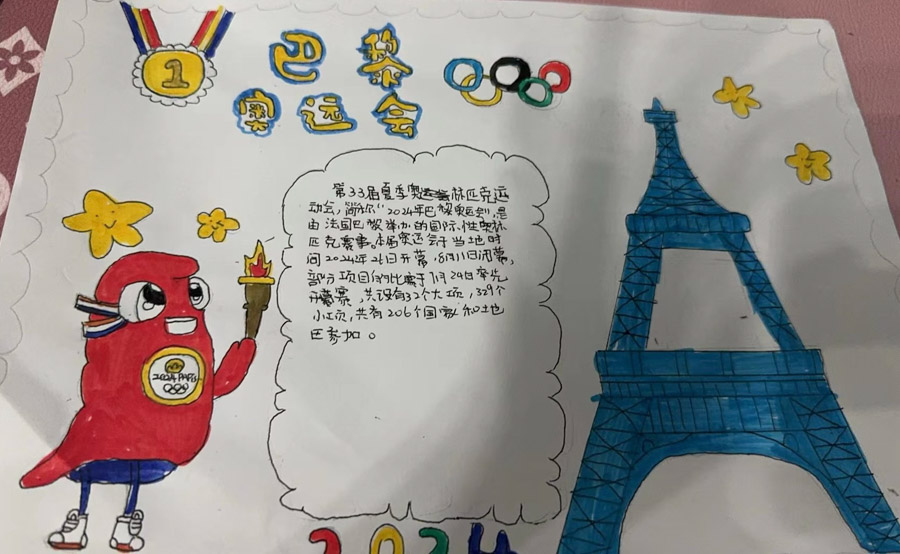 1
巴黎
奥运会
第33届夏季奥林匹克运
动会,简称"2024年巴黎奥运会",是
由法国巴黎举办的国际性奥林
匹克赛事。本届奥运会于当地时
间2024年26日开幕,8月11日闭幕,
部分项目的比赛于7月24日率先
开幕赛,共设有32个大项,329个
小项,共有206个国家和地
区参加。
2024 PARIS
2024